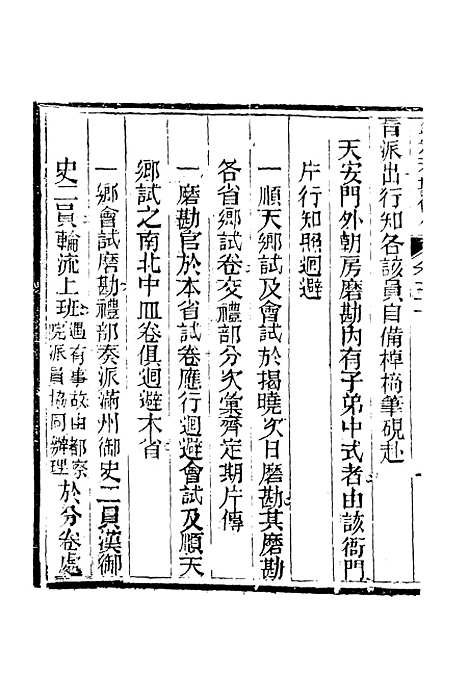 旨派出行知各該員自備棹椅筆硯赴
天安門外朝房磨勘內有子弟中式者由該衙門
片行知照迴避
一順天鄉試及會試於揭曉次日磨勘其磨勘
各省鄉試卷交禮部分次彙齊定期片傳
一磨勘官於本省試卷應行迴避會試及順天
鄉試之南北中皿卷俱迴避本省
一鄉會試磨勘禮部奏派滿州御史二員漢御
史二員輪流上班遇有事故由都察院派員協同辦理於分卷處